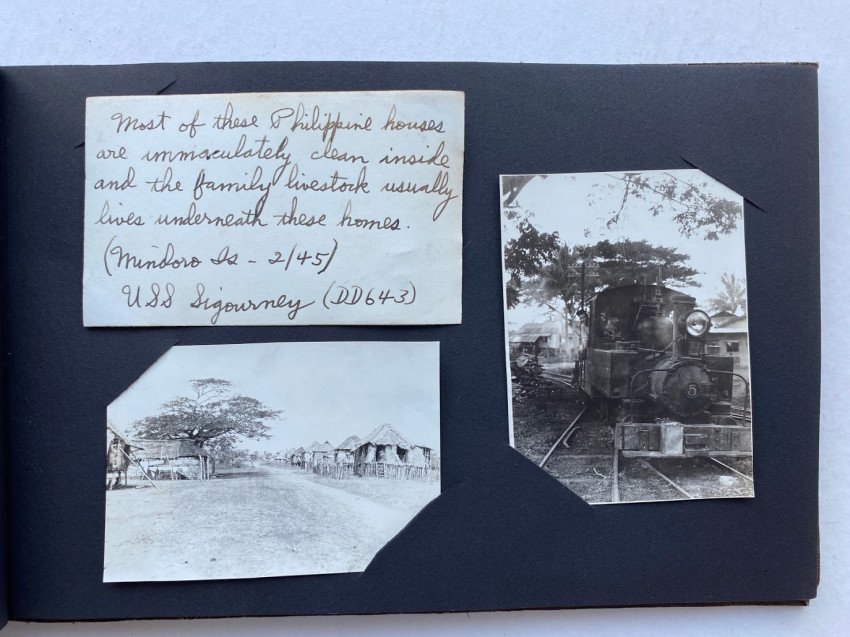 Most of these Philippine houses
are immaculately clean inside
and the family livestock usually
lives underneath these homes.
(Mindoro Is - 2/45)
USS Sigourney (DD643)
5